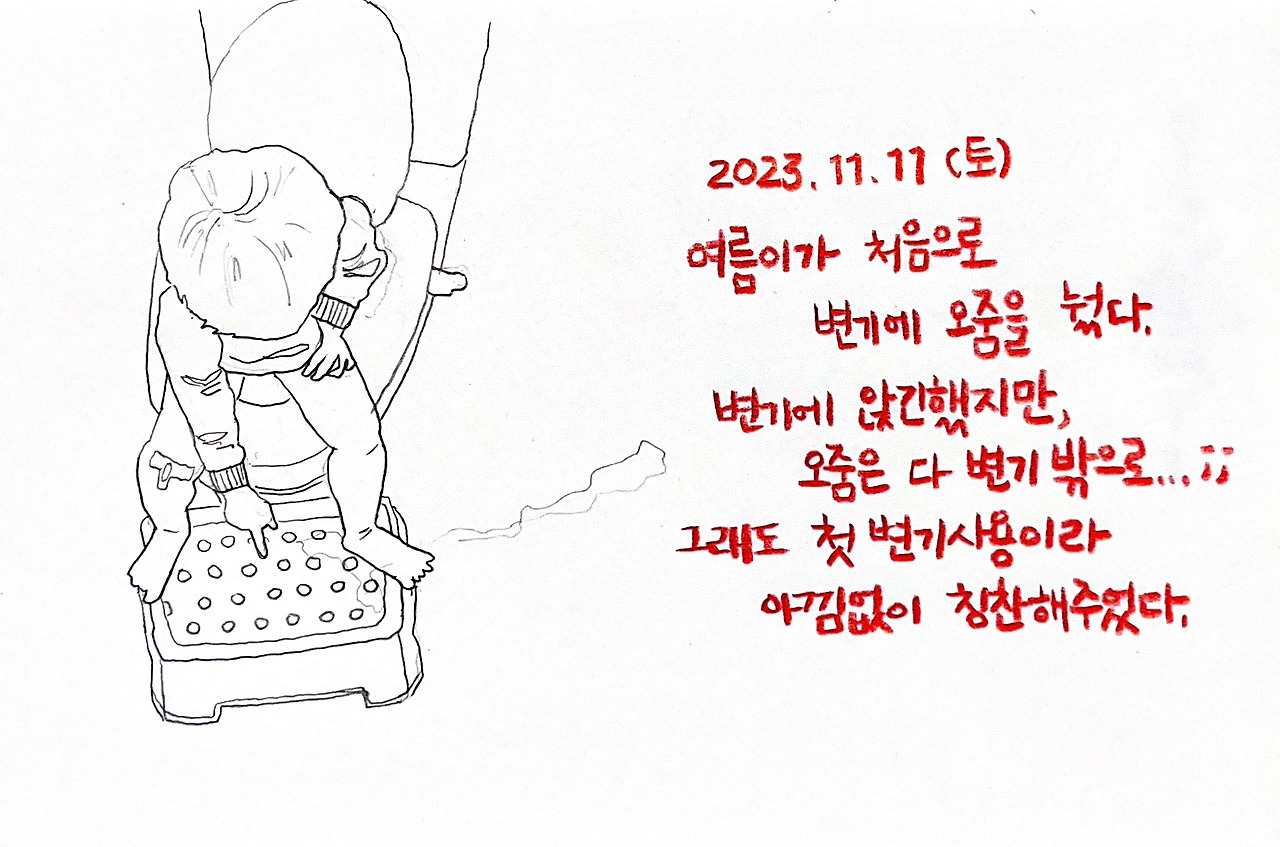 2023.11.11 (토)
여름이가 처음으로
변기에 오줌을 눴다.
변기에 앉긴했지만,
오줌은 다 변기 밖으로...;;
그래도 첫 변기사용이라
아낌없이 칭찬해주었다.